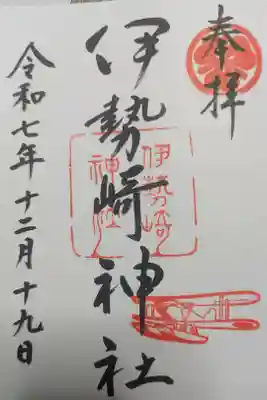 奉拝
伊勢崎神社
伊勢崎
神社
令和七年十二月十九日